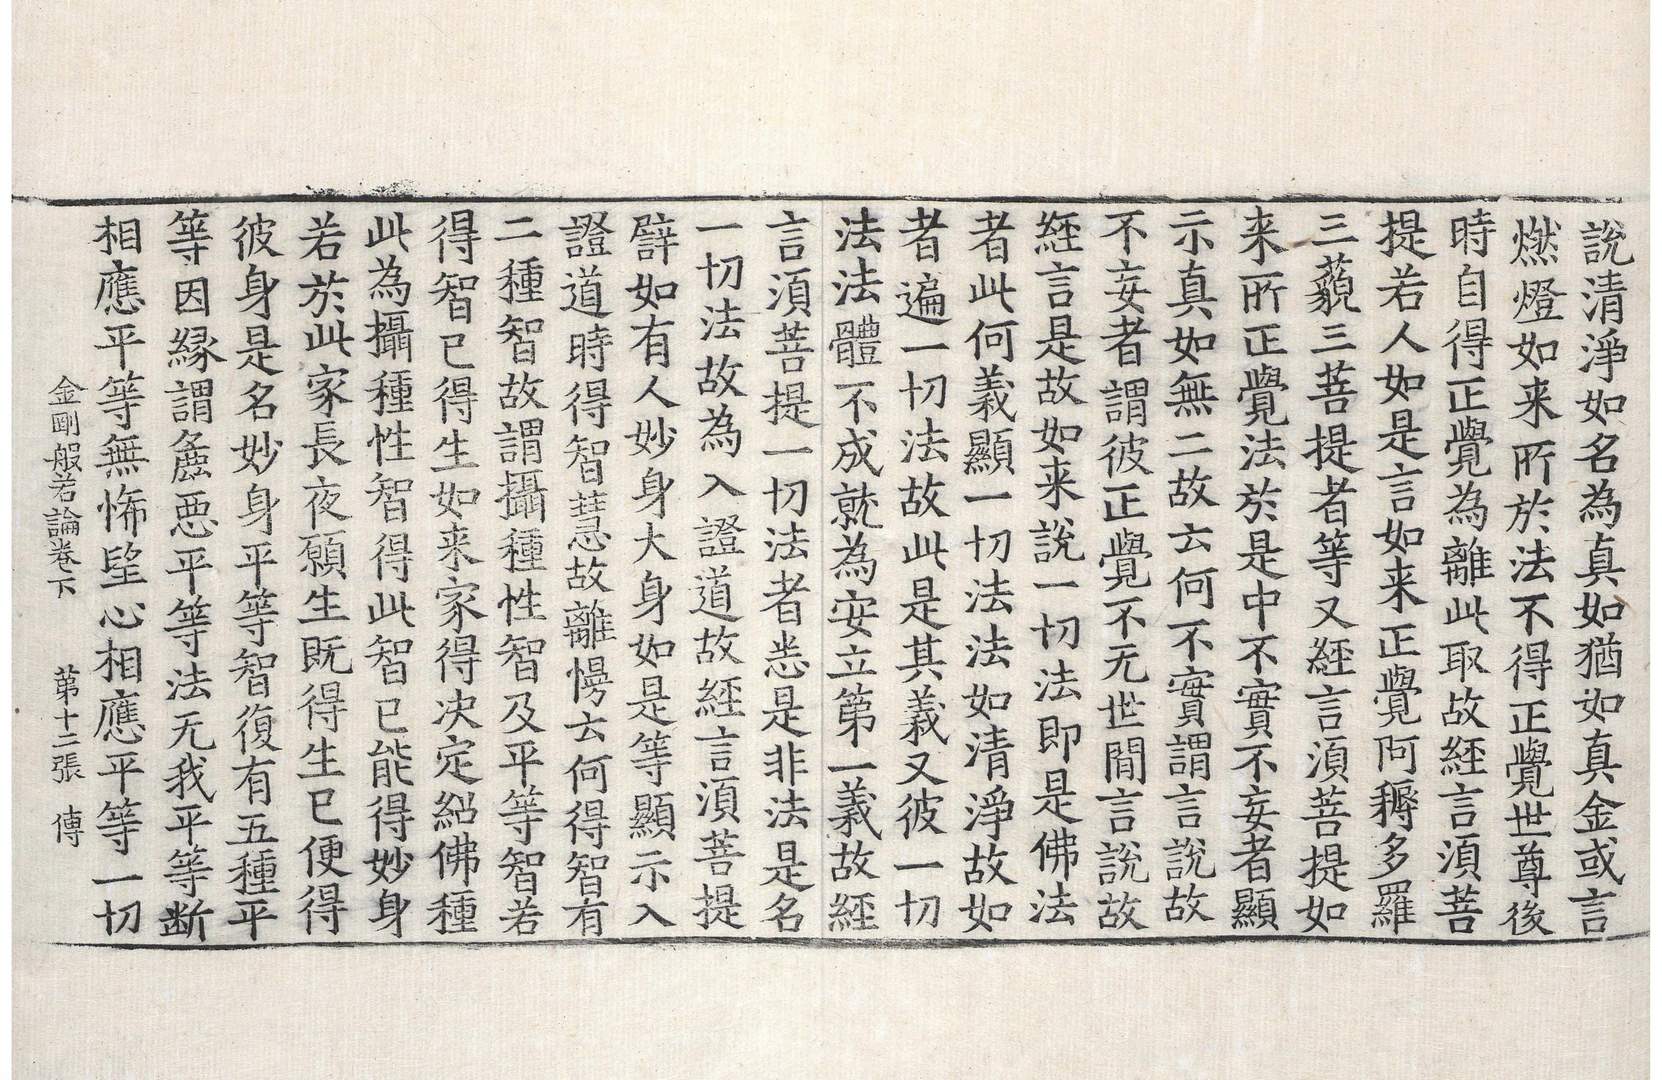 說清淨如名為真如猶如真金或言
燃燈如来所於法不得正覺世尊後
時自得正覺為離此取故經言湏菩
提若人如是言如来正覺阿耨多羅
三藐三菩提者等又經言湏菩提如
来所正覺法於是中不實不妄者顯
示真如無二故云何不實謂言說故
不妄者謂彼正覺不无世間言說故
經言是故如来說一切法即是佛法
者此何義顯一切法法如清淨故如
者遍一切法故此是其義又彼一切
法法體不成就為安立第一義故經
言湏菩提一切法者悉是非法是名
一切法故為入證道故經言湏菩提
譬如有人妙身大身如是等顯示入
證道時得智慧故離慢云何得智有
二種智故謂攝種性智及平等智若
得智已得生如来家得决定紹佛種
此為攝種性智得此智已能得妙身
若於此家長夜願生既得生已便得
彼身是名妙身平等智復有五種平
等因縁謂麁惡平等法无我平等断
相應平等無悕望心相應平等一切
金剛般若論卷下 第十二張 傳